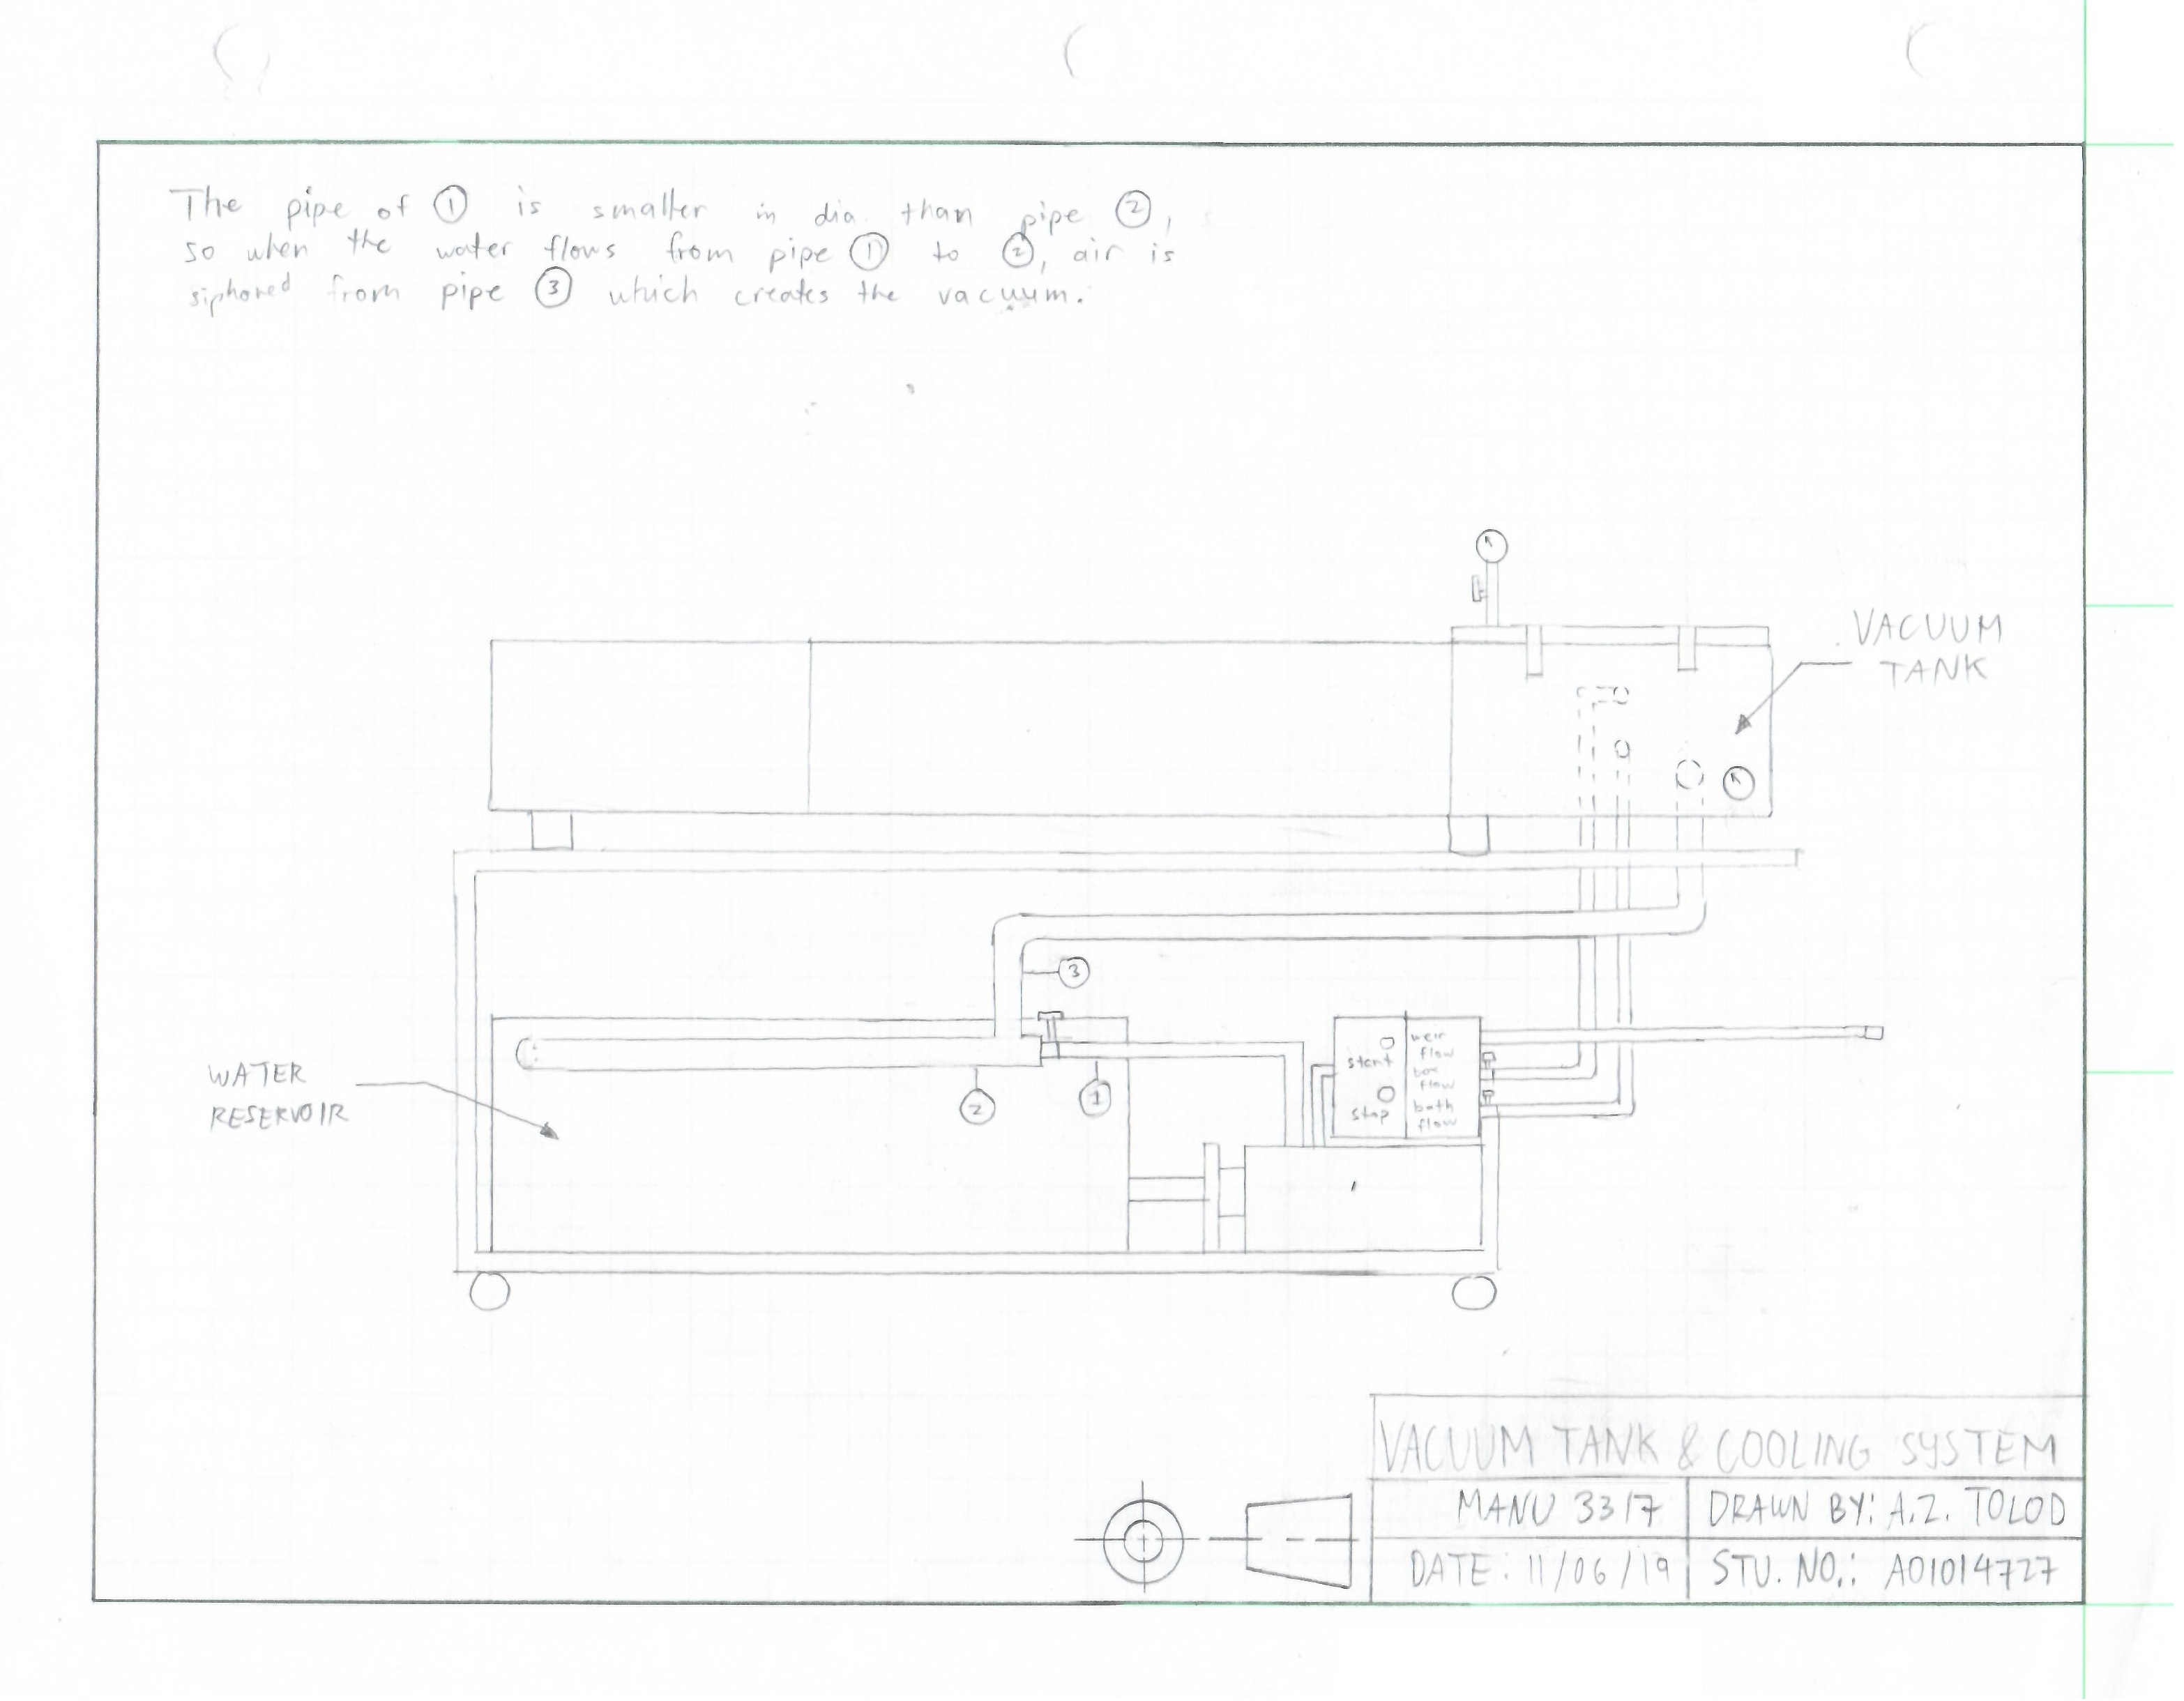 The pipe of ① is smaller in dia. than pipe ②,
so when the water flows from pipe ① to ②, air is
siphoned from pipe ③ which creates the vacuum.
VACUUM
TANK
3
WATER
RESERVOIR
2
1
start
stop
weir
flow
box
flow
bath
flow
VACUUM TANK & COOLING SYSTEM
MANU 3317
DRAWN BY: A.Z. TOLOD
DATE: 11/06/19
STU. NO.: A01014727